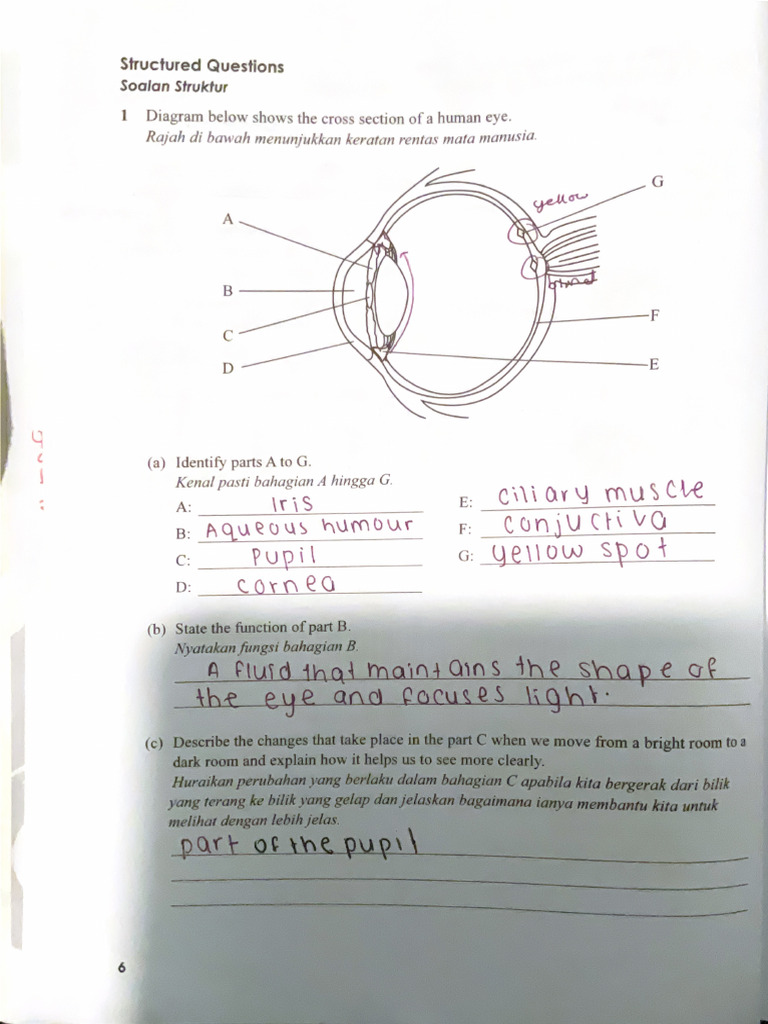 Structured Questions
Soalan Struktur
1 Diagram below shows the cross section of a human eye.
Rajah di bawah menunjukkan keratan rentas mata manusia.
G
yellow
A
B
F
C
D
E
(a) Identify parts A to G.
Kenal pasti bahagian A hingga G.
A: Iris
E: ciliary muscle
B: Aqueous humour
F: conjuctiva
C: Pupil
G: yellow spot
D: cornea
(b) State the function of part B.
Nyatakan fungsi bahagian B.
A fluid that maintains the shape of
the eye and focuses light.
(c) Describe the changes that take place in the part C when we move from a bright room to a
dark room and explain how it helps us to see more clearly.
Huraikan perubahan yang berlaku dalam bahagian C apabila kita bergerak dari bilik
yang terang ke bilik yang gelap dan jelaskan bagaimana ianya membantu kita untuk
melihat dengan lebih jelas.
part of the pupil
6